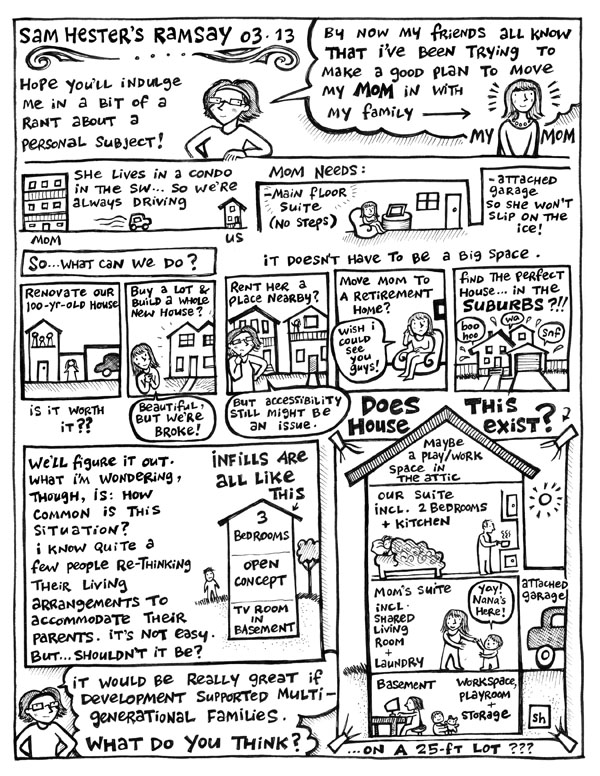 SAM HESTER'S RAMSAY 03.13
HOPE YOU'LL INDULGE
ME IN A BIT OF A
RANT ABOUT A
PERSONAL SUBJECT!
BY NOW MY FRIENDS ALL KNOW
THAT I'VE BEEN TRYING TO
MAKE A GOOD PLAN TO MOVE
MY MOM IN WITH
MY FAMILY
MY MOM
SHE LIVES IN A CONDO
IN THE SW... SO WE'RE
ALWAYS DRIVING
MOM
US
MOM NEEDS:
-MAIN FLOOR
SUITE
(NO STEPS)
-ATTACHED
GARAGE
SO SHE WON'T
SLIP ON THE
ICE!
SO...WHAT CAN WE DO?
IT DOESN'T HAVE TO BE A BIG SPACE.
RENOVATE OUR
100-YR-OLD HOUSE
IS IT WORTH
IT??
BUY A LOT &
BUILD A WHOLE
NEW HOUSE?
BEAUTIFUL,
BUT WE'RE
BROKE!
RENT HER A
PLACE NEARBY?
BUT ACCESSIBILITY
STILL MIGHT BE
AN ISSUE.
MOVE MOM TO
A RETIREMENT
HOME?
WISH I
COULD
SEE
YOU
GUYS!
FIND THE PERFECT
HOUSE... IN THE
SUBURBS?!!
BOO
HOO
WA
SNF
WE'LL FIGURE IT OUT.
WHAT I'M WONDERING,
THOUGH, IS: HOW
COMMON IS THIS
SITUATION?
I KNOW QUITE A
FEW PEOPLE RE-THINKING
THEIR LIVING
ARRANGEMENTS TO
ACCOMMODATE THEIR
PARENTS. IT'S NOT EASY.
BUT... SHOULDN'T IT BE?
INFILLS ARE
ALL LIKE
THIS
3
BEDROOMS
OPEN
CONCEPT
TV ROOM
IN
BASEMENT
DOES THIS
HOUSE EXIST?
MAYBE
A PLAY/WORK
SPACE IN
THE ATTIC
OUR SUITE
INCL. 2 BEDROOMS
+ KITCHEN
MOM'S SUITE
INCL.
SHARED
LIVING
ROOM
+
LAUNDRY
YAY!
NANA'S
HERE!
ATTACHED
GARAGE
BASEMENT
WORKSPACE,
PLAYROOM
+
STORAGE
sh
...ON A 25-FT LOT ???
IT WOULD BE REALLY GREAT IF
DEVELOPMENT SUPPORTED MULTI-
GENERATIONAL FAMILIES.
WHAT DO YOU THINK?